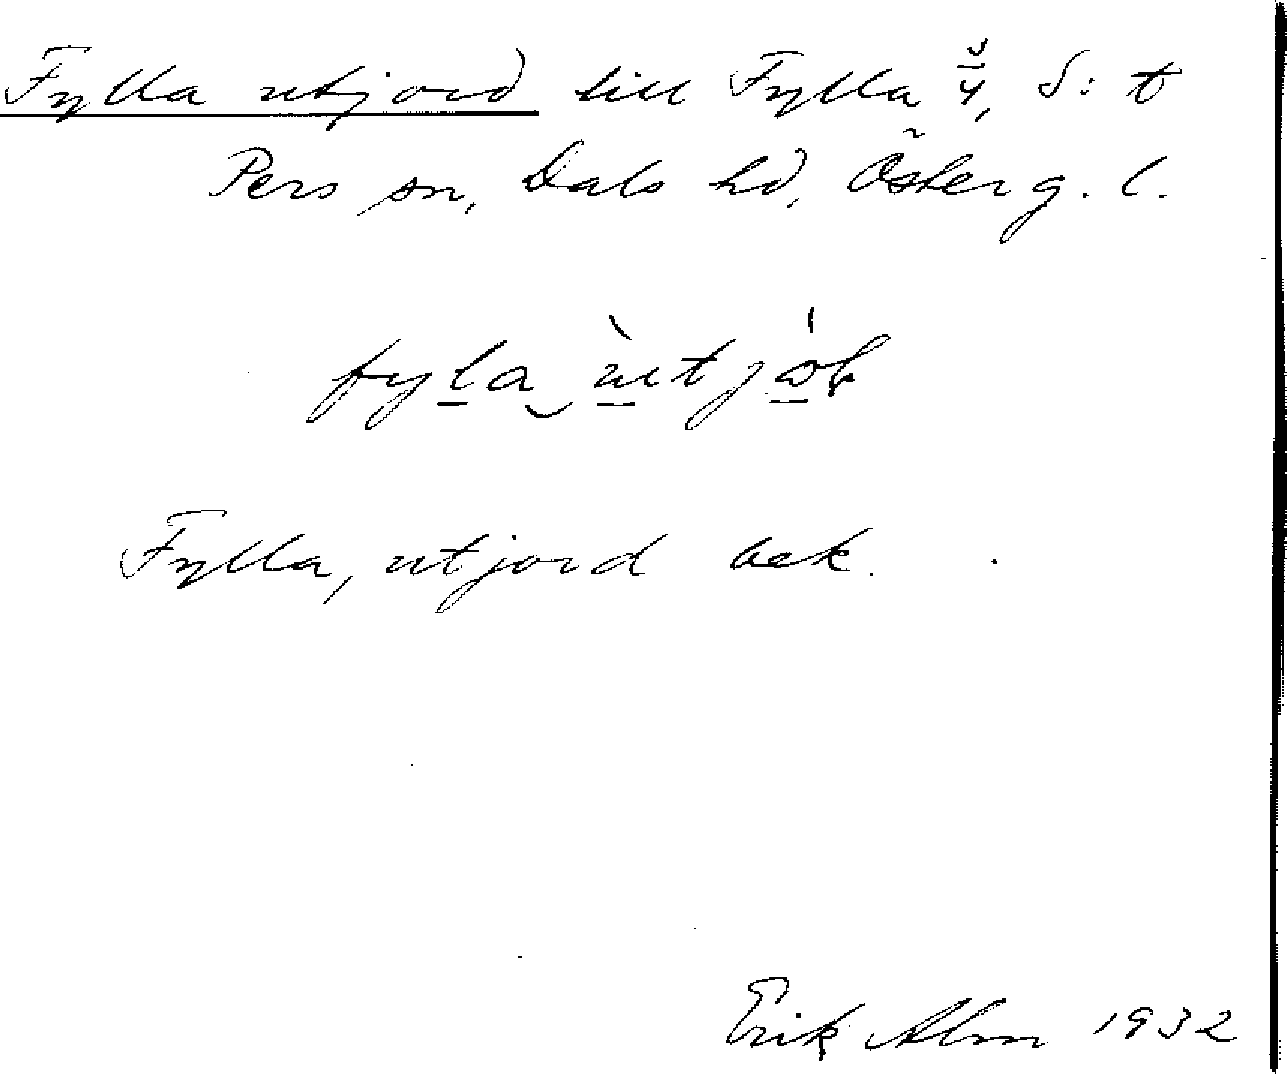 Fylla utjord till Fylla ¾, S:t
Pers sn, Dals hd, Österg. l.
fyla ùtjóḷ
Fylla, utjord bek.
Erik Abm 1932